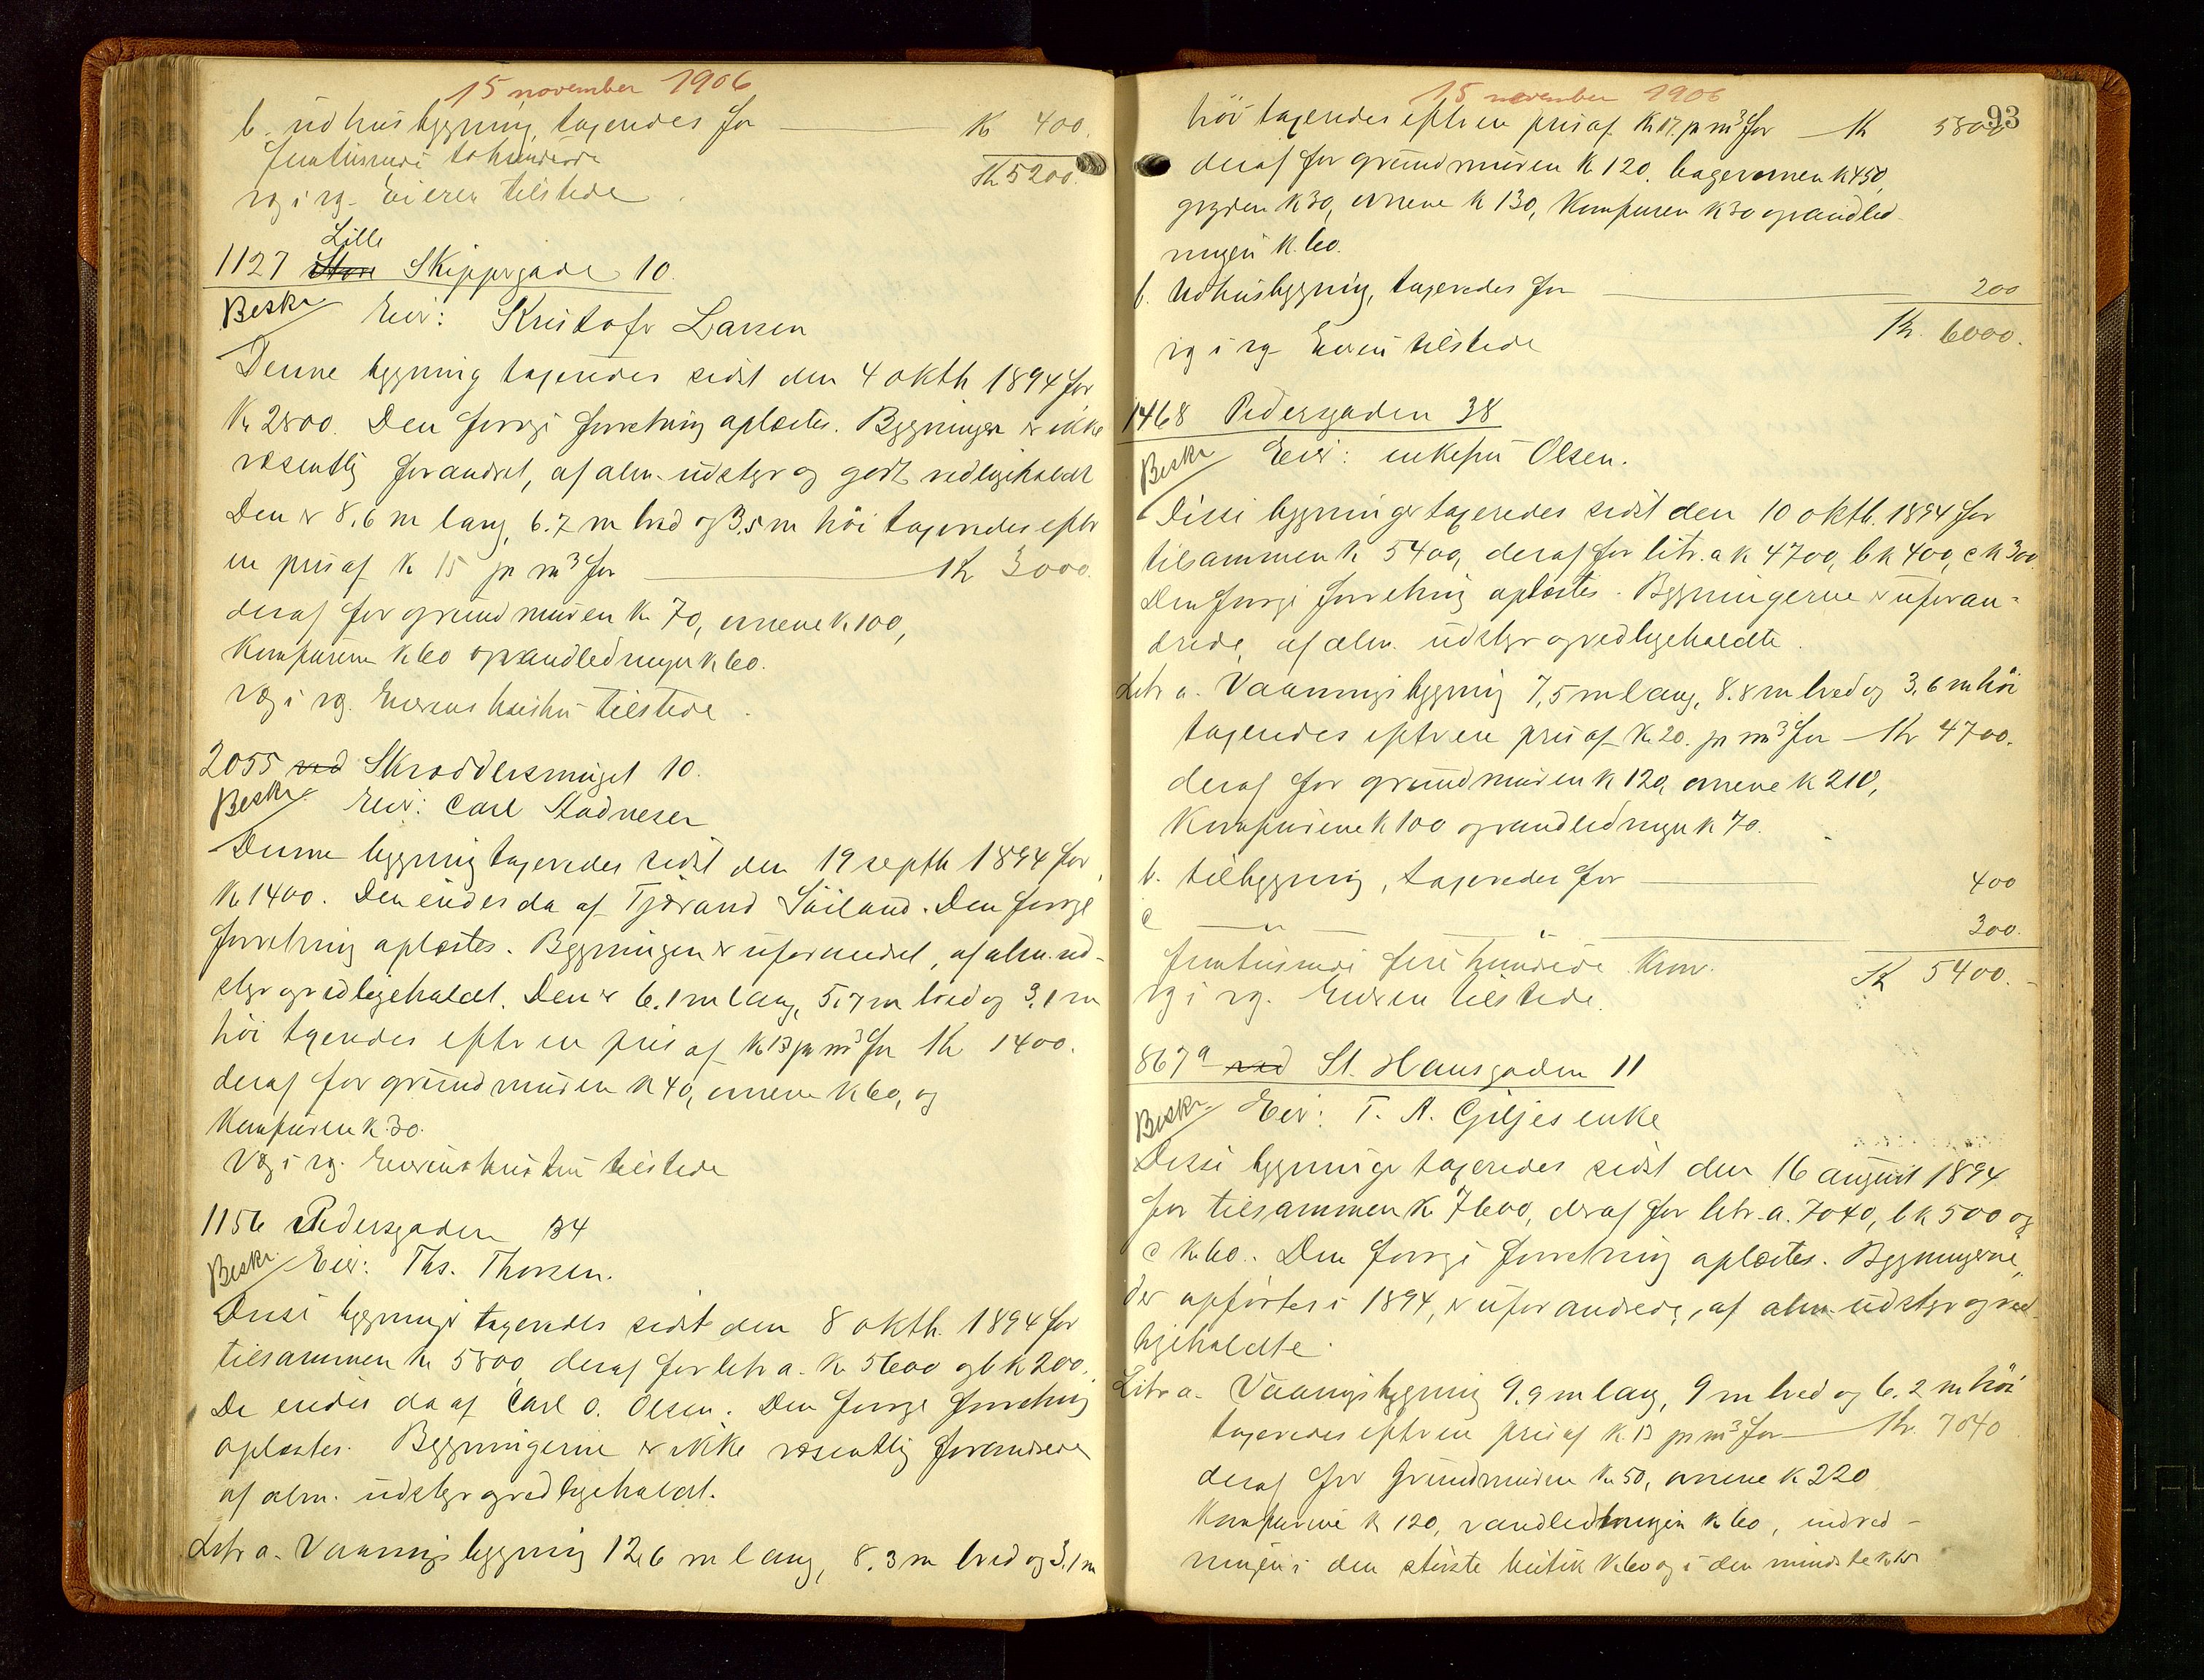 15 november 1906
b. udhusbygning, taxeredes for K 400.
femtusinde tohundrede K 5200.
og i rg. Eieren tilstede
Lille
1127 Store Skippergade 10.
Beskr. Eier: Kristofer Larsen
Denne bygning taxeredes sidst den 4 oktb 1894 for
K 2800. Den forrige forretning oplæstes. Bygningen er ikke
væsentlig forandret, af alm. udstyr og godt vedligeholdt
Den er 8.6 m lang, 6.7 m bred og 3.5 m høi taxeredes efter
en pris af K 15 pr m³ for K 3000.
deraf for grundmuren K 70, ovnene K 100,
Komfurene K 60 og vandledningen K 60.
og i rg. Eierens hustru tilstede.
2055 ved Skræddersmuget 10.
Beskr. Eier: Carl Stadnesen
Denne bygning taxeredes sidst den 19 septb 1894 for
K 1400. Den eiedes da af Tjærand Søiland. Den forrige
forretning oplæstes. Bygningen er uforandret, af alm. ud-
styr og vedligeholdt. Den er 6.1 m lang, 5.7 m bred og 3.1 m
høi taxeredes efter en pris af K 13 pr m³ for K 1400.
deraf for grundmuren K 40, ovnene K 60, og
Komfuren K 30.
og i rg. Eierens hustru tilstede
1156 Pedersgaden 34
Beskr. Eier: Ths. Thorsen.
Disse bygninger taxeredes sidst den 8 oktb. 1894 for
tilsammen K 5800, deraf for litr a. K 5600 og b K 200.
De eiedes da af Carl O. Olsen. Den forrige forretning
oplæstes. Bygningerne er ikke væsentlig forandrede
af alm. udstyr og vedligeholdt.
Litr a. Vaaningsbygning 12,6 m lang, 8.3 m bred og 3.1 m
15 november 1906
93
høi taxeredes efter en pris af K 17. pr m³ for K 5800
deraf for grundmuren K 120, bagerovnen K 450,
gryden K 30, ovnene K 130, Komfuren K 30 og vandled-
ningen K. 60.
b. Udhusbygning, taxeredes for 200
K. 6000.
og i rg Eieren tilstede
1468 Pedersgaden 38
Beskr. Eier: enkefru Olsen.
Disse bygninger taxeredes sidst den 10 oktb. 1894 for
tilsammen K 5400, deraf for litr. a K 4700, b K 400, c K 300.
Den forrige forretning oplæstes. Bygningerne er uforan-
drede, af alm. udstyr og vedligeholdte.
Litr a. Vaaningsbygning 7,5 m lang, 8.8 m bred og 3.6 m høi
taxeredes efter en pris af K 20. pr m³ for Kr 4700.
deraf for grundmuren K 120, ovnene K 210,
Komfurene K 100 og vandledningen K 70.
b. tilbygning, taxeredes for 400
c " 300.
femtusinde fire hundrede Kron. K 5400.-
og i rg. Eieren tilstede.
867a ved St. Hansgaden 11
Beskr. Eier: T. A. Giljes enke
Disse bygninger taxeredes sidst den 16 august 1894
for tilsammen K 7600, deraf for litr. a. 7040, b K 500 og
c K 60. Den forrige forretning oplæstes. Bygningerne,
der opførtes i 1894, er uforandrede, af alm udstyr og ved-
ligeholdte.
Litr a. Vaaningsbygning 9.9 m lang, 9 m bred og 6.2 m høi
taxeredes efter en pris af K. 13 pr m³ for Kr. 7040
deraf for Grundmuren K 50, ovnene K 220
Komfurene K 120, vandledningen K 60, indred-
ningen i den største butik K 60 og i den mindste K